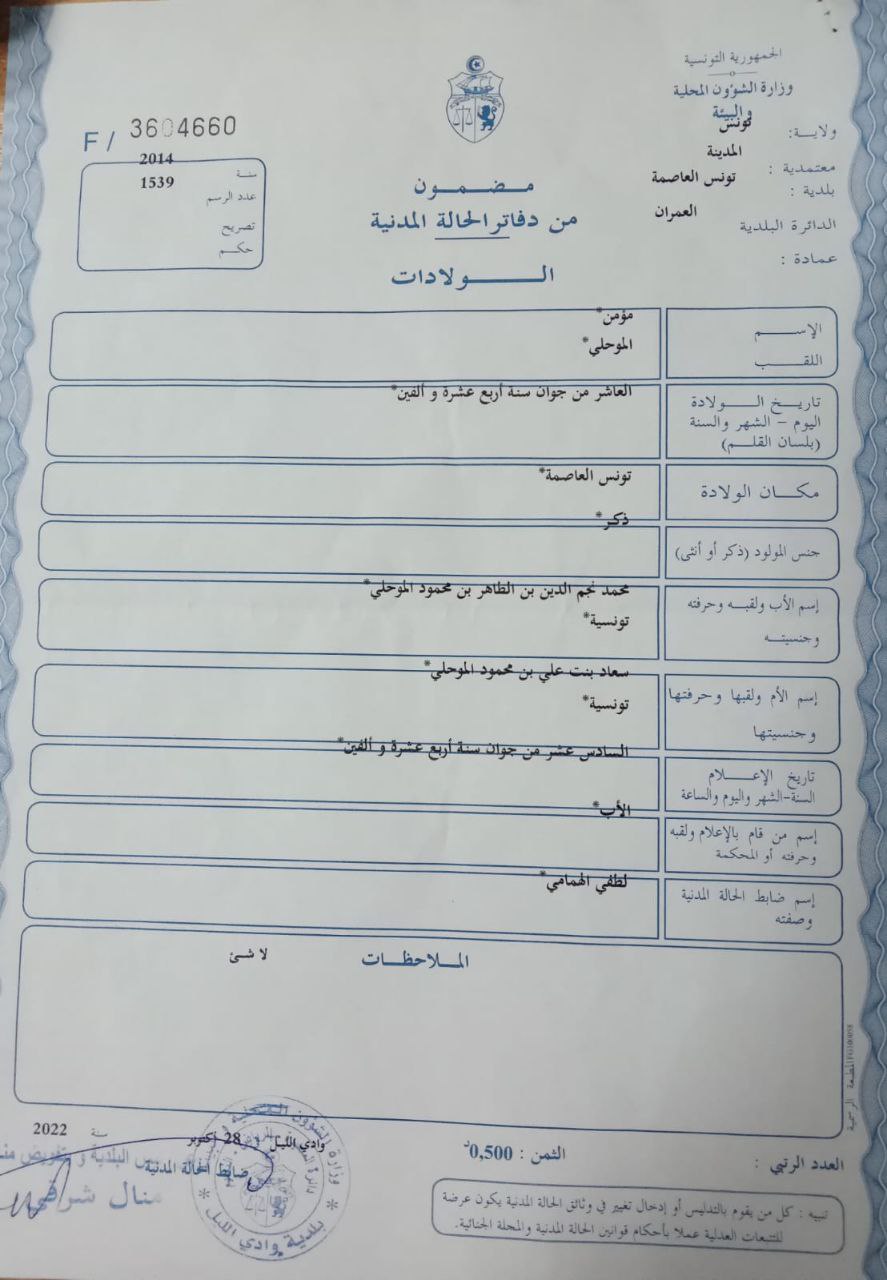 الجمهورية التونسية
وزارة الشؤون المحلية
والبيئة
ولايـة: تونس
معتمدية : المدينة
بلدية : تونس العاصمة
الدائرة البلدية العمران
عمادة :
F / 3604660
سنة 2014
عدد الرسم 1539
تصريح
حكـم
مـضـمـون
من دفاتر الحالة المدنية
الـــولادات
الإســـم مؤمن*
اللقـب الموحلي*
تاريـخ الـــولادة العاشر من جوان سنة أربع عشرة و ألفين*
اليوم - الشهر والسنة
(بلسان القلـم)
مكـان الولادة تونس العاصمة*
جنس المولود (ذكر أو أنثى) ذكر*
إسم الأب ولقبـه وحرفته محمد نجم الدين بن الطاهر بن محمود الموحلي*
وجنسيتـه تونسية*
إسم الأم ولقبها وحرفتها سعاد بنت علي بن محمود الموحلي*
وجنسيتها تونسية*
تاريخ الإعـــلام السادس عشر من جوان سنة أربع عشرة و ألفين*
السنة-الشهر واليوم والساعة
إسم من قام بالإعلام ولقبه الأب*
وحرفته أو المحكمة
إسم ضابط الحالة المدنية لطفي الهمامي*
وصفته
الملاحظـات
لا شئ
وادي الليل 28 أكتوبر سنة 2022
ضابط الحالة المدنية
منال شرفي
بلدية وادي الليل
الثمن : 0,500د
العدد الرتبي :
تنبيه : كل من يقوم بالتدليس أو إدخال تغيير في وثائق الحالة المدنية يكون عرضة
للتتبعات العدلية عملا بأحكام قوانين الحالة المدنية والمجلة الجنائية.